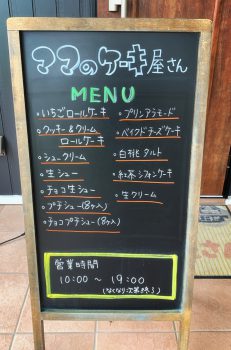 ママのケーキ屋さん
MENU
・いちごロールケーキ
・クッキー&クリーム
ロールケーキ
・シュークリーム
・生シュー
・チョコ生シュー
・プチシュー(8ヶ入)
・チョコプチシュー(8ヶ入)
・プリンアラモード
・ベイクドチーズケーキ
・白桃タルト
・紅茶シフォンケーキ
・生クリーム
営業時間
10:00 〜 19:00
(なくなり次第終了)